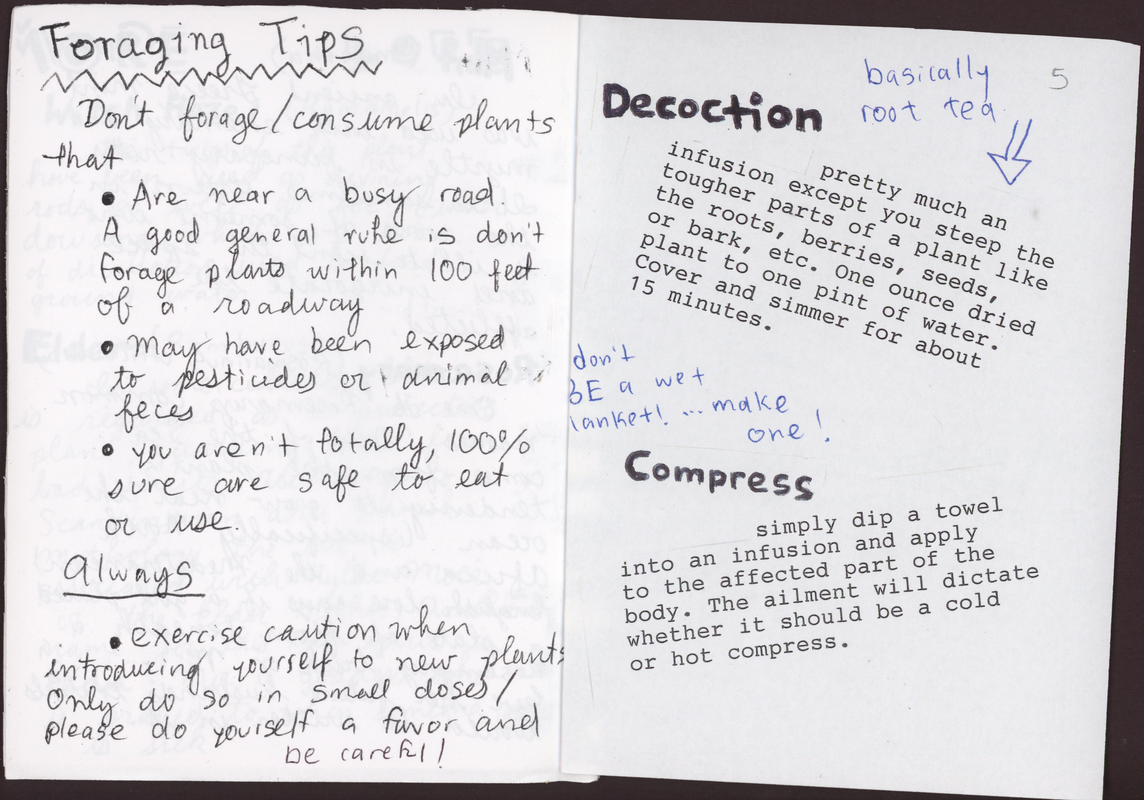 Foraging Tips
Don't forage/consume plants
that
• Are near a busy road.
A good general rule is don't
forage plants within 100 feet
of a roadway
• May have been exposed
to pesticides or animal
feces
• you aren't totally, 100%
sure are safe to eat
or use.
Always
• exercise caution when
introducing yourself to new plants
Only do so in small doses/
please do yourself a favor and
be careful!
5
basically
root tea
Decoction
pretty much an
infusion except you steep the
tougher parts of a plant like
the roots, berries, seeds,
or bark, etc. One ounce dried
plant to one pint of water.
Cover and simmer for about
15 minutes.
don't
BE a wet
lanket! ... make
one!
Compress
simply dip a towel
into an infusion and apply
to the affected part of the
body. The ailment will dictate
whether it should be a cold
or hot compress.